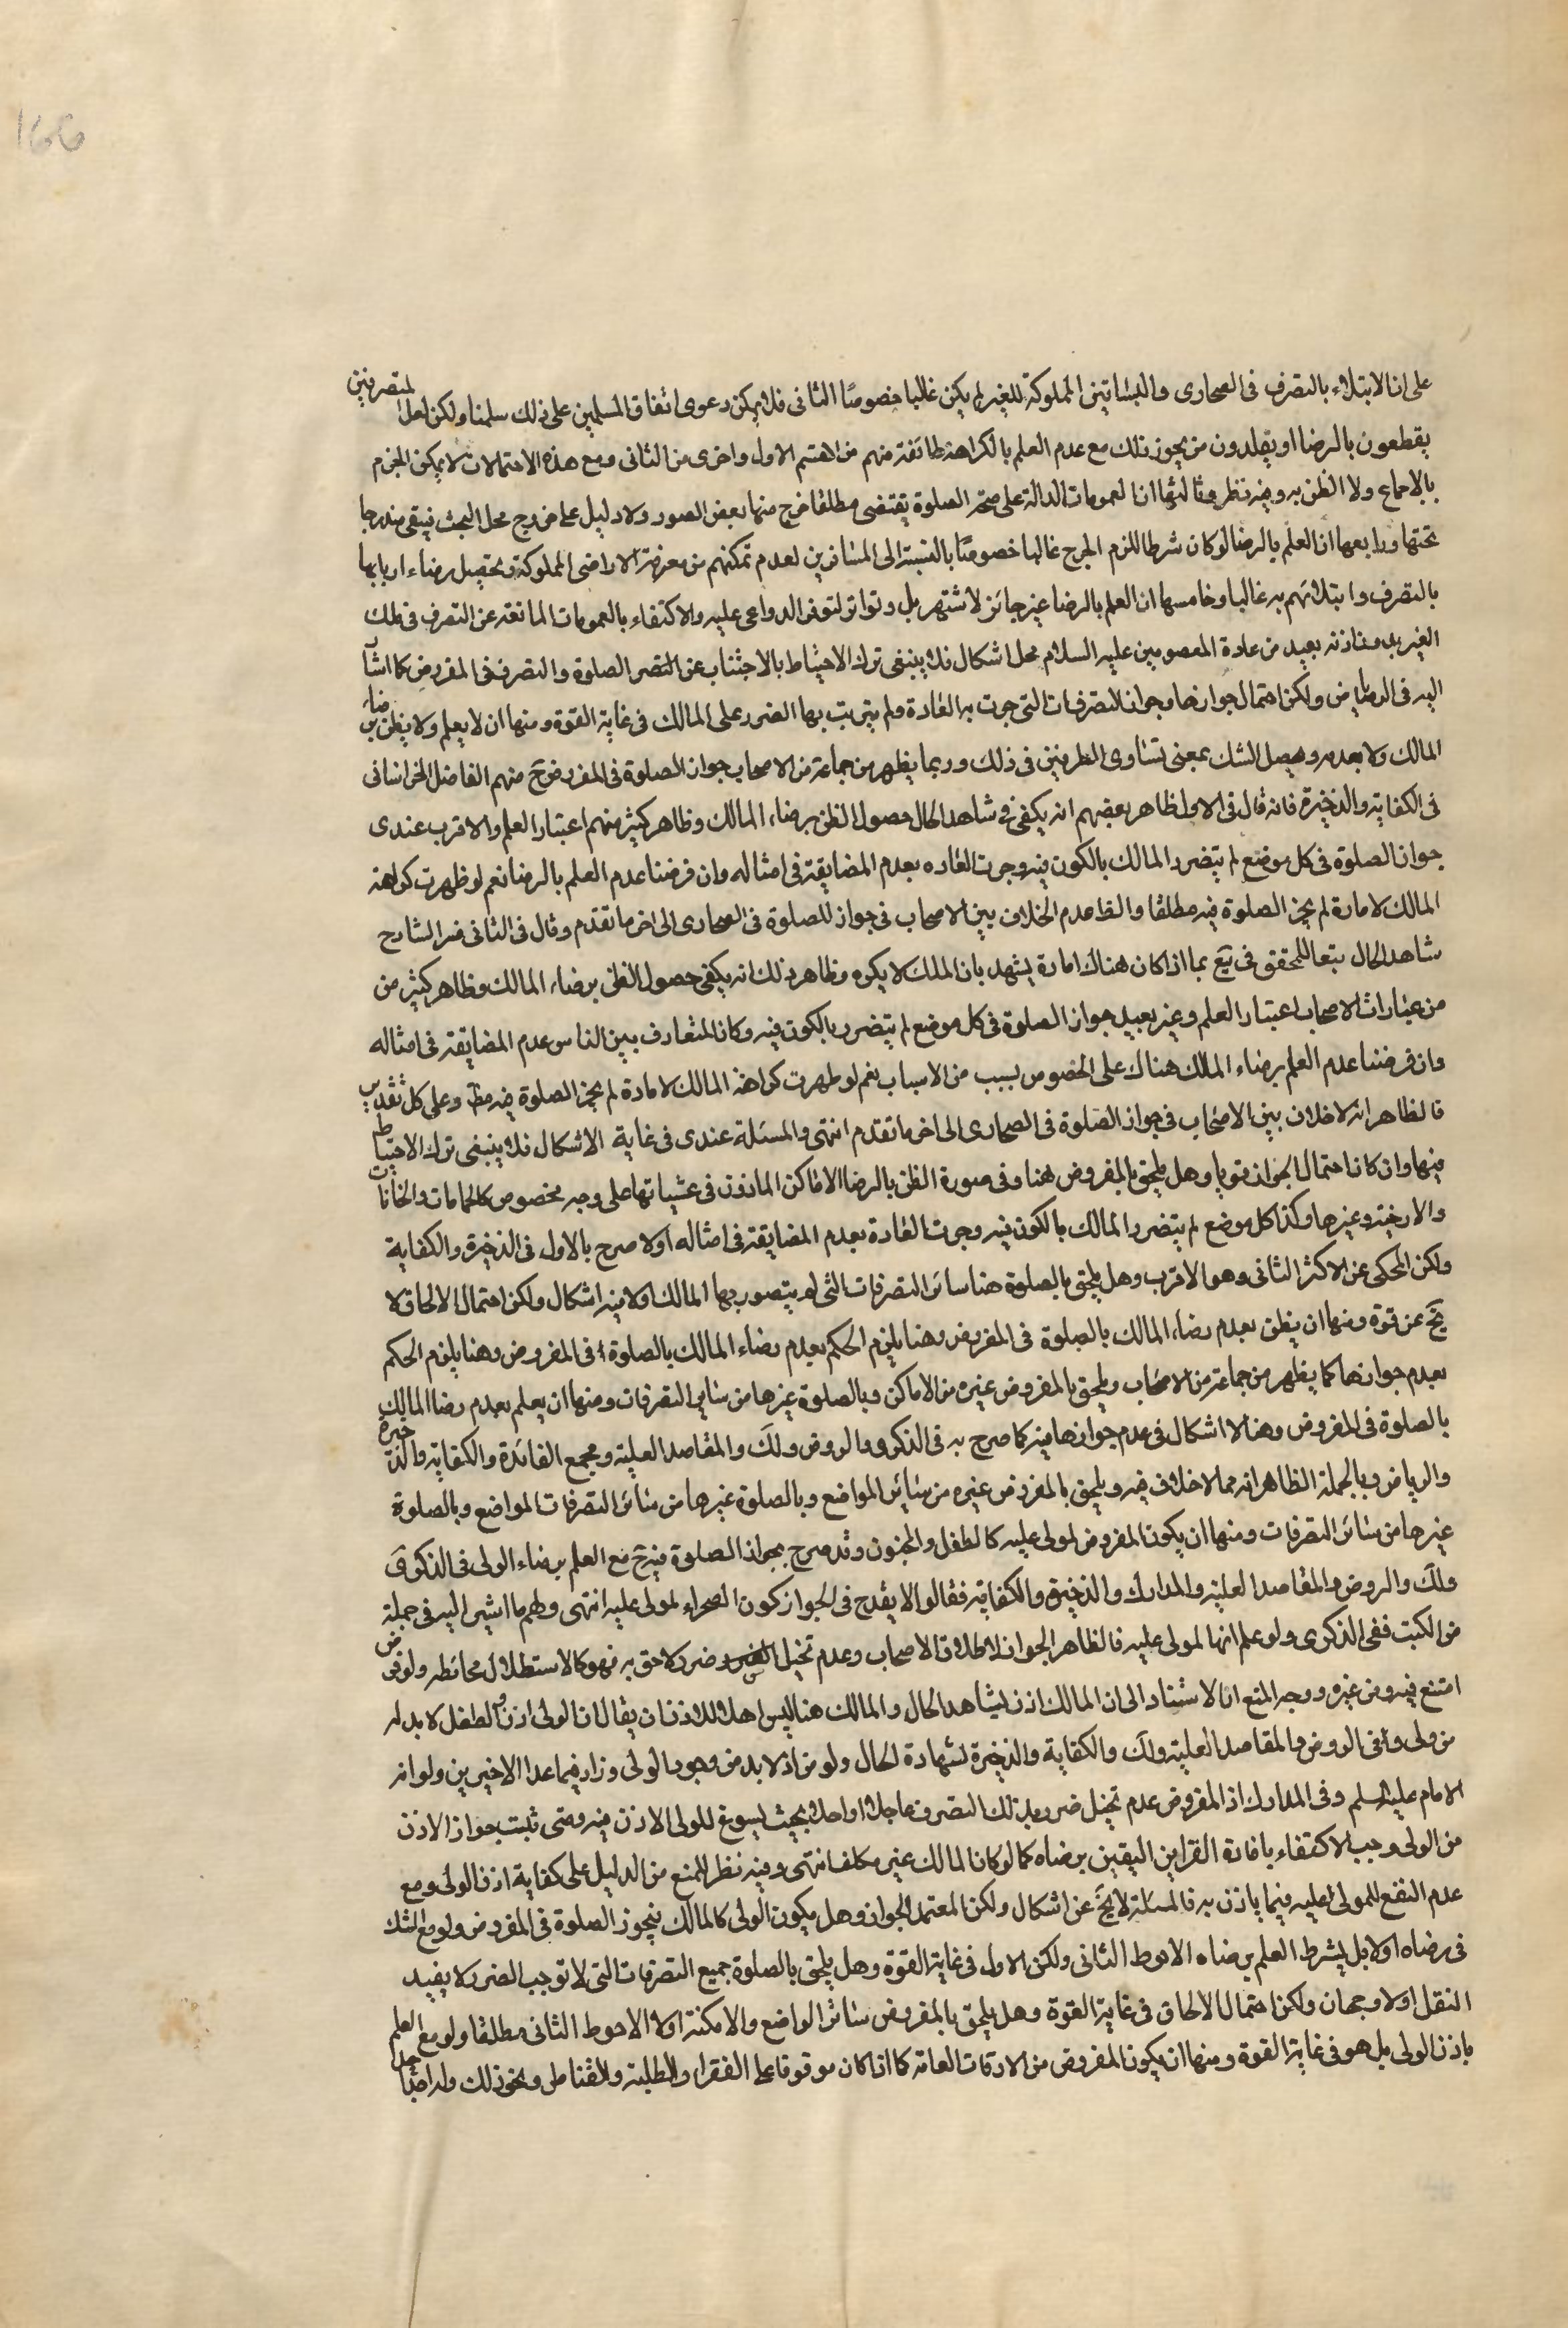 ١٥٥
على ان الابتلاء بالتصرف فى الصحارى والبساتين المملوكة للغير لم يكن غالبا خصوصًا الثانى فلا يمكن دعوى اتفاق المسلمين على ذلك سلمنا ولكن لعل المتصرفين
يقطعون بالرضا او يقلدون من يجوز ذلك مع عدم العلم بالكراهة طائفة منهم من القسم الاول واخرى من الثانى ومع هذه الاحتمالات لا يمكن الجزم
بالاجماع ولا الظن به وفيه نظر وثالثها ان العمومات الدالة على صحة الصلوة يقتضى مطلقا خرج منها بعض الصور ولا دليل على خروج محل البحث فيبقى مندرجا
تحتها ورابعها ان العلم بالرضا لو كان شرطا للزم الحرج غالبا خصوصًا بالنسبة الى المسافرين لعدم تمكنهم من معرفة الاراضى المملوكة وتحصيل رضاء اربابها
بالتصرف وابتلائهم به غالبا وخامسها ان العلم بالرضا غير جائز لاشتهر بل وتواتر لتوفر الدواعى عليه والاكتفاء بالعمومات المانعة عن التصرف فى ملك
الغير بدون اذنه بعيد من عادة المعصومين عليه السلام محل اشكال فلا ينبغى ترك الاحتياط بالاجتناب عن التصر الصلوة والتصرف فى المفروض كما اشا
اليه فى الرياض ولكن احتمال جوازها وجواز التصرفات التى جرت به العادة ولم يترتب بها الضرر على المالك فى غاية القوة ومنها ان لا يعلم ولا يظن برضاء
المالك ولا بعدمه ويحصل الشك بمعنى تساوى الطرفين فى ذلك وربما يظهر من جماعة من الاصحاب جواز الصلوة فى المفروض ح منهم الفاضل الخراسانى
فى الكفاية والذخيرة فانه قال فى الاول ظاهر بعضهم انه يكفى فى شاهد الحال حصول الظن برضاء المالك وظاهر كثير منهم اعتبار العلم والاقرب عندى
جواز الصلوة فى كل موضع لم يتضرر المالك بالكون فيه وجرت العاده بعدم المضايقة فى امثاله وان فرضنا عدم العلم بالرضا نعم لو ظهرت كراهة
المالك لامارة لم يجز الصلوة فيه مطلقا والظا عدم الخلاف بين الاصحاب فى جواز للصلوة فى الصحارى الى اخر ما تقدم وقال فى الثانى فسر الشارح
شاهد الحال تبعا للمحقق فى يع بما اذا كان هناك امارة يشهد بان الملك لا يكره وظاهر ذلك انه يكفى حصول الظن برضاء المالك وظاهر كثير من
من عبارات الاصحاب اعتبار العلم وغير بعيد جواز الصلوة فى كل موضع لم يتضرر بالكون فيه وكان المتعارف بين الناس عدم المضايقة فى امثاله
وان فرضنا عدم العلم برضاء المالك هناك على الخصوص بسبب من الاسباب نعم لو ظهرت كراهة المالك لامارة لم يجز الصلوة فيه مط وعلى كل تقدير
فالظاهر انه لا خلاف بين الاصحاب فى جواز الصلوة فى الصحارى الى اخر ما تقدم انتهى والمسئلة عندى فى غاية الاشكال فلا ينبغى ترك الاحتياط
فيها وان كان احتمال الجواز قويا وهل يلحق بالمفروض هنا وفى صورة الظن بالرضا الاماكن الماذون فى غشياتها على وجه مخصوص كالحمامات والخانات
والارحية وغيرها وكذا كل موضع لم يتضرر المالك بالكون فيه وجرت العادة بعدم المضايقة فى امثاله او لا صرح بالاول فى الذخيرة والكفاية
ولكن المحكى عن الاكثر الثانى وهو الاقرب وهل يلحق بالصلوة هنا سائر التصرفات التى لم يتصور بها المالك او لا فيه اشكال ولكن احتمال الالحاق لا
يخ عن قوة ومنها ان يظن بعدم رضاء المالك بالصلوة فى المفروض وهنا يلزم الحكم بعدم رضاء المالك بالصلوة فى المفروض وهنا يلزم الحكم
بعدم جوازها كما يظهر من جماعة من الاصحاب ويلحق بالمفروض غيره من الاماكن وبالصلوة غيرها من سائر التصرفات ومنها ان يعلم بعدم رضا المالك
بالصلوة فى المفروض وهنا لا اشكال فى عدم جوازها فيه كما صرح به فى الذكرى والروض ولك والمقاصد العلية ومجمع الفائدة والكفاية والذخيرة
والرياض وبالجملة الظاهر انه مما لا خلاف فيه ويلحق بالمفروض غيره من سائر المواضع وبالصلوة غيرها من سائر التصرفات المواضع وبالصلوة
غيرها من سائر التصرفات ومنها ان يكون المفروض لمولى عليه كالطفل والمجنون وقد صرح بجواز الصلوة فيه ح مع العلم برضاء الولى فى الذكرى
ولك والروض والمقاصد العلية والمدارك والذخيرة والكفاية فقالوا لا يقدح فى الجواز كون الصحراء لمولى عليه انتهى ولهم ما اشير اليه فى جملة
من الكتب ففى الذكرى ولو علم انها لمولى عليه فالظاهر الجواز لاطلاق الاصحاب وعدم تخيل ضرر لاحق به فهو كالاستظلال بحائطه ولو فرض
امتنع فيه وفى غيره ووجه المنع ان الاستناد الى ان المالك اذن لشاهد الحال والمالك هنا ليس اهلا للاذن ان يقال ان الولى اذن والطفل لا بد له
من ولى وفى الروض والمقاصد العلية ولك والكفاية والذخيرة لشهادة الحال ولو من اذ لا بد من وجود الولى وزاد فيما عدا الاخيرين ولو انه
الامام عليه السلم وفى المدارك اذ المفروض عدم تخيل ضرر بذلك التصرف عاجلا او اجلا بحيث يسوغ للولى الاذن فيه ومتى ثبت جواز الاذن
من الولى وجب الاكتفاء بافادة القراين اليقين برضاه كما لو كان المالك غير مكلف انتهى وفيه نظر للمنع من الدليل على كفاية اذن الولى ومع
عدم النفع للمولى عليه فيما ياذن به فالمسئلة لا يخ عن اشكال ولكن المعتمد الجواز وهل يكون الولى كالمالك فيجوز الصلوة فى المفروض ولو مع الشك
فى رضاه او لا بل يشرط العلم برضاه الاحوط الثانى ولكن الاول فى غاية القوة وهل يلحق بالصلوة جميع التصرفات التى لا توجب الضرر ولا يفيد
النقل او لا وجهان ولكن احتمال الالحاق فى غاية القوة وهل يلحق بالمفروض سائر المواضع والامكنة او لا الاحوط الثانى مطلقا ولو مع العلم
باذن الولى بل هو فى غاية القوة ومنها ان يكون المفروض من الاوقات العامة كما اذا كان موقوفا على الفقراء والطلبة والقناطر ونحو ذلك